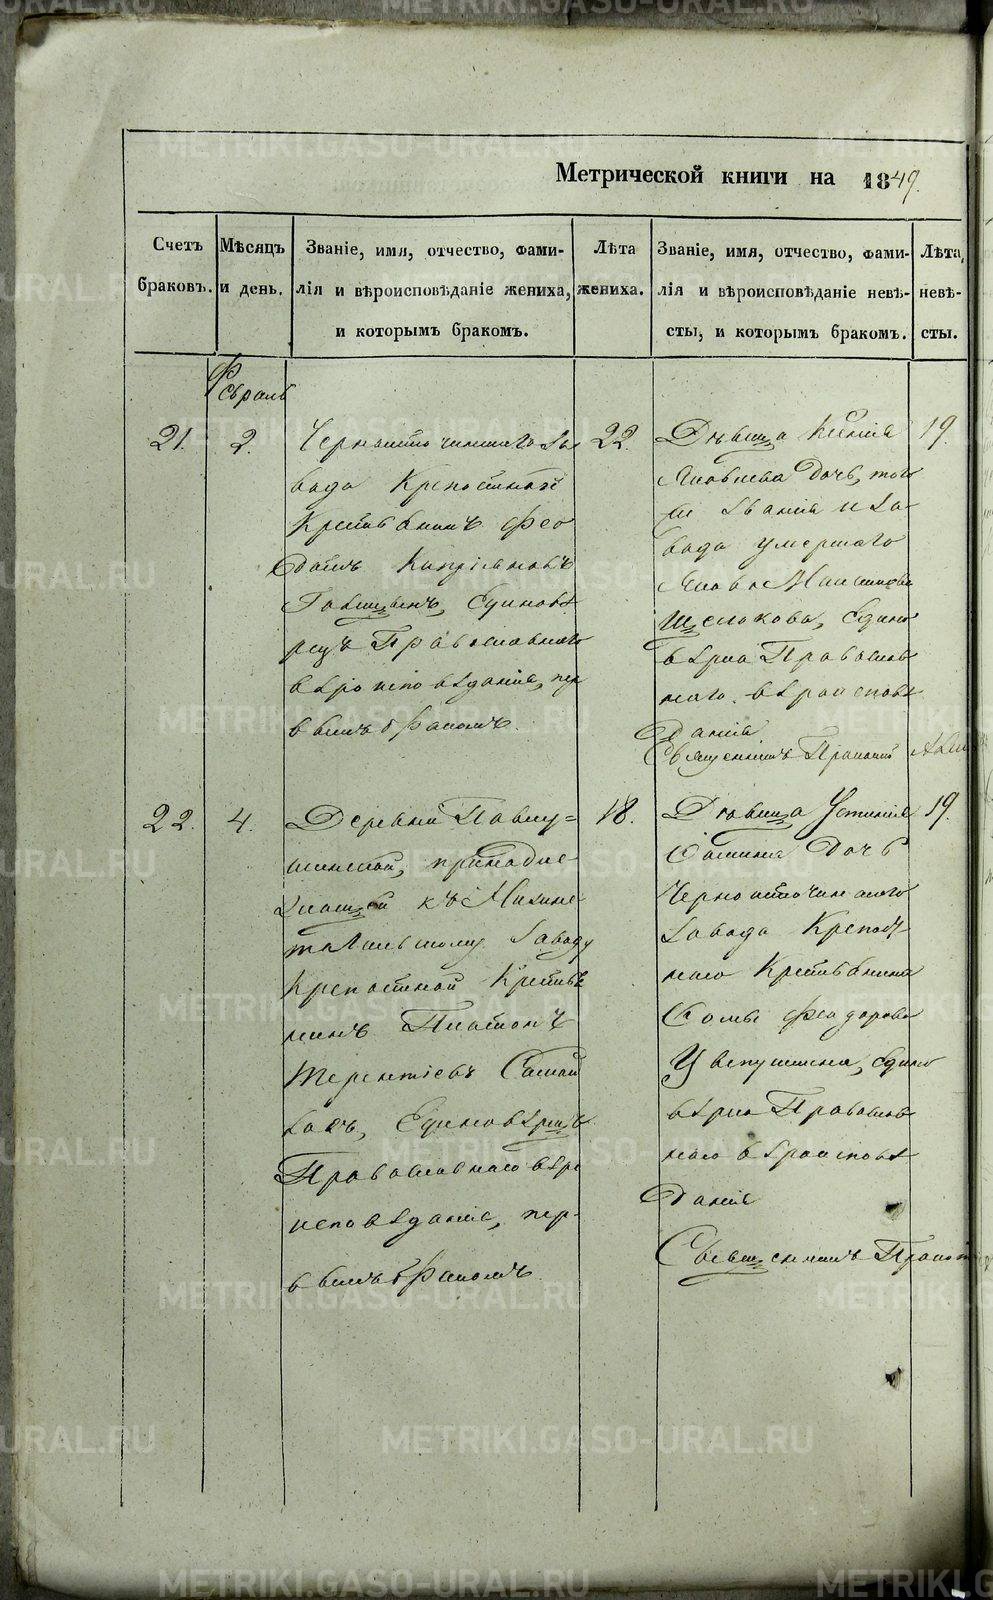 Метрической книги на 1849.
Счетъ браковъ.
Мѣсяцъ и день.
Званіе, имя, отчество, фами-
лія и вѣроисповѣданіе жениха,
и которымъ бракомъ.
Лѣта жениха.
Званіе, имя, отчество, фами-
лія и вѣроисповѣданіе невѣ-
сты, и которымъ бракомъ.
Лѣта, невѣ-
сты.
Февраль
21.
2.
Черноисточинскаго За
вода Крепостной
Крестьянинъ Фео
дотъ Кипріяновъ
Единовѣ
рецъ Православнаго
вѣроисповѣданія, пер
вымъ бракомъ.
22.
Дѣвица
Яковлева Дочь, того
же званія и За-
вода умершаго
Якова
Щелокова, Едино
вѣрка Православ
наго вѣроисповѣ
данія
Священникъ
19.
22.
4.
Деревни Павлу-
шинской, принадле
жащей къ Нижне
тагильскому Заводу
Крепостной Крестья
нинъ Платонъ
Терентіевъ
Единовѣрецъ
Православнаго вѣро
исповѣданія, пер-
вымъ бракомъ.
18.
Дѣвица Устинія
Дочь
Черноисточинскаго
Завода Крепост
наго Крестьянина
Феодорова
Едино
вѣрка Православ
наго вѣроисповѣ
данія
Священникъ
19.
METRIKI.GASO-URAL.RU